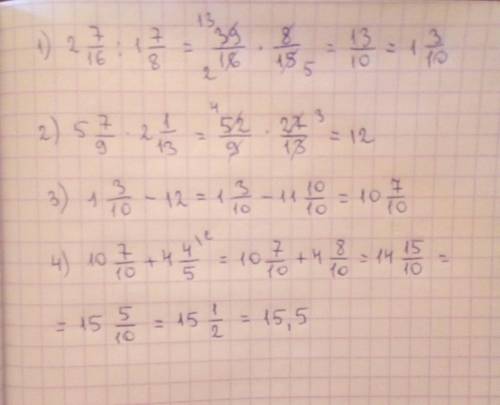 1) 2 7/16 : 1 7/8 = 39/16 · 8/15 = 13/10 = 1 3/10
13
2 5
2) 5 7/9 · 2 1/13 = 52/9 · 27/13 = 12
4 3
3) 1 3/10 − 12 = 1 3/10 − 11 10/10 = 10 7/10
4) 10 7/10 + 4 4/5 \2 = 10 7/10 + 4 8/10 = 14 15/10 =
= 15 5/10 = 15 1/2 = 15,5